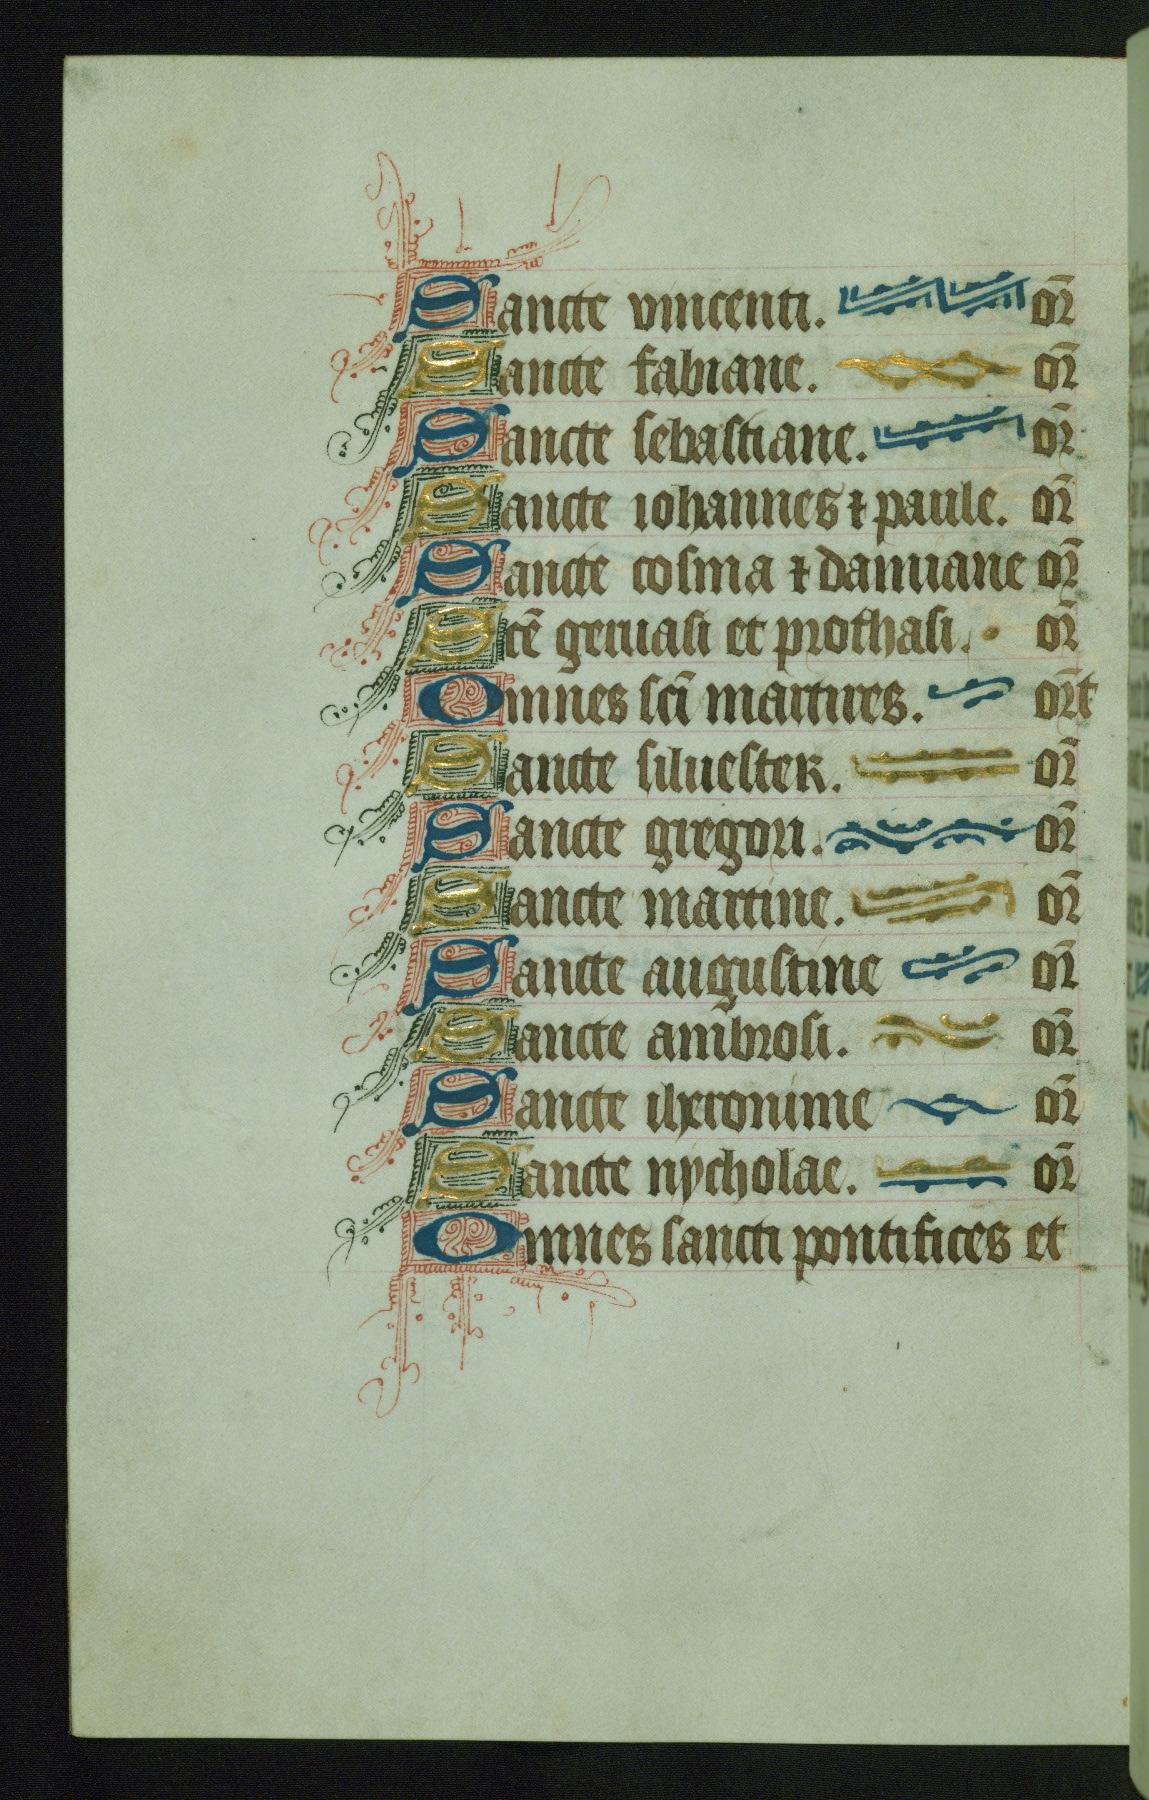 Sancte vincenti. or̄
Sancte fabiane. or̄
Sancte sebastiane. or̄
Sancte iohannes ⁊ paule. or̄
Sancte cosma ⁊ damiane or̄
Sctē geruasi et prothasi. or̄
Omnes scī martires. or̄t
Sancte siluester. or̄
Sancte gregori. or̄
Sancte martine. or̄
Sancte augustine or̄
Sancte ambrosi. or̄
Sancte iheronime or̄
Sancte nycholae. or̄
Omnes sancti pontifices et